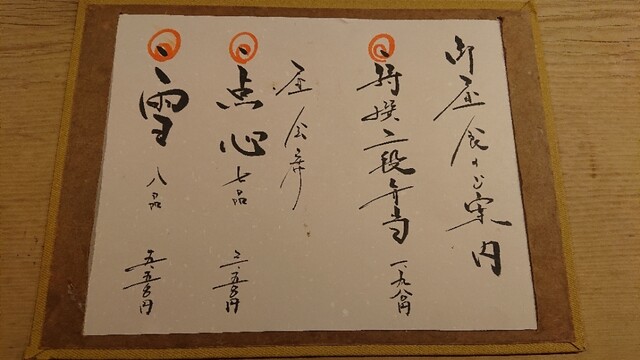 御昼食のご案内
特撰二段弁当 一、九八〇円
昼会席
点心 七品 二、五〇〇円
雪 八品 五、五〇〇円